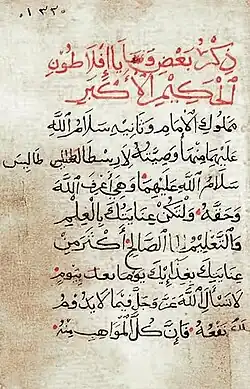 ١٣٣
ذكر بعض وصايا افلاطون
الحكيم الاكبر
مملوك الامام وثانيه سلام الله
عليهما منها وصيته لارسطاطاليس
سلام الله عليهما وهي اعرف الله
وحقه ولتكن عنايتك بالعلم
والتعليم الصالح اكثر من
عنايتك بغذائك يوما بعد يوم
لا تسأل الله عز وجل فيما لا يدوم
لك نفعه فان كل المواهب منه